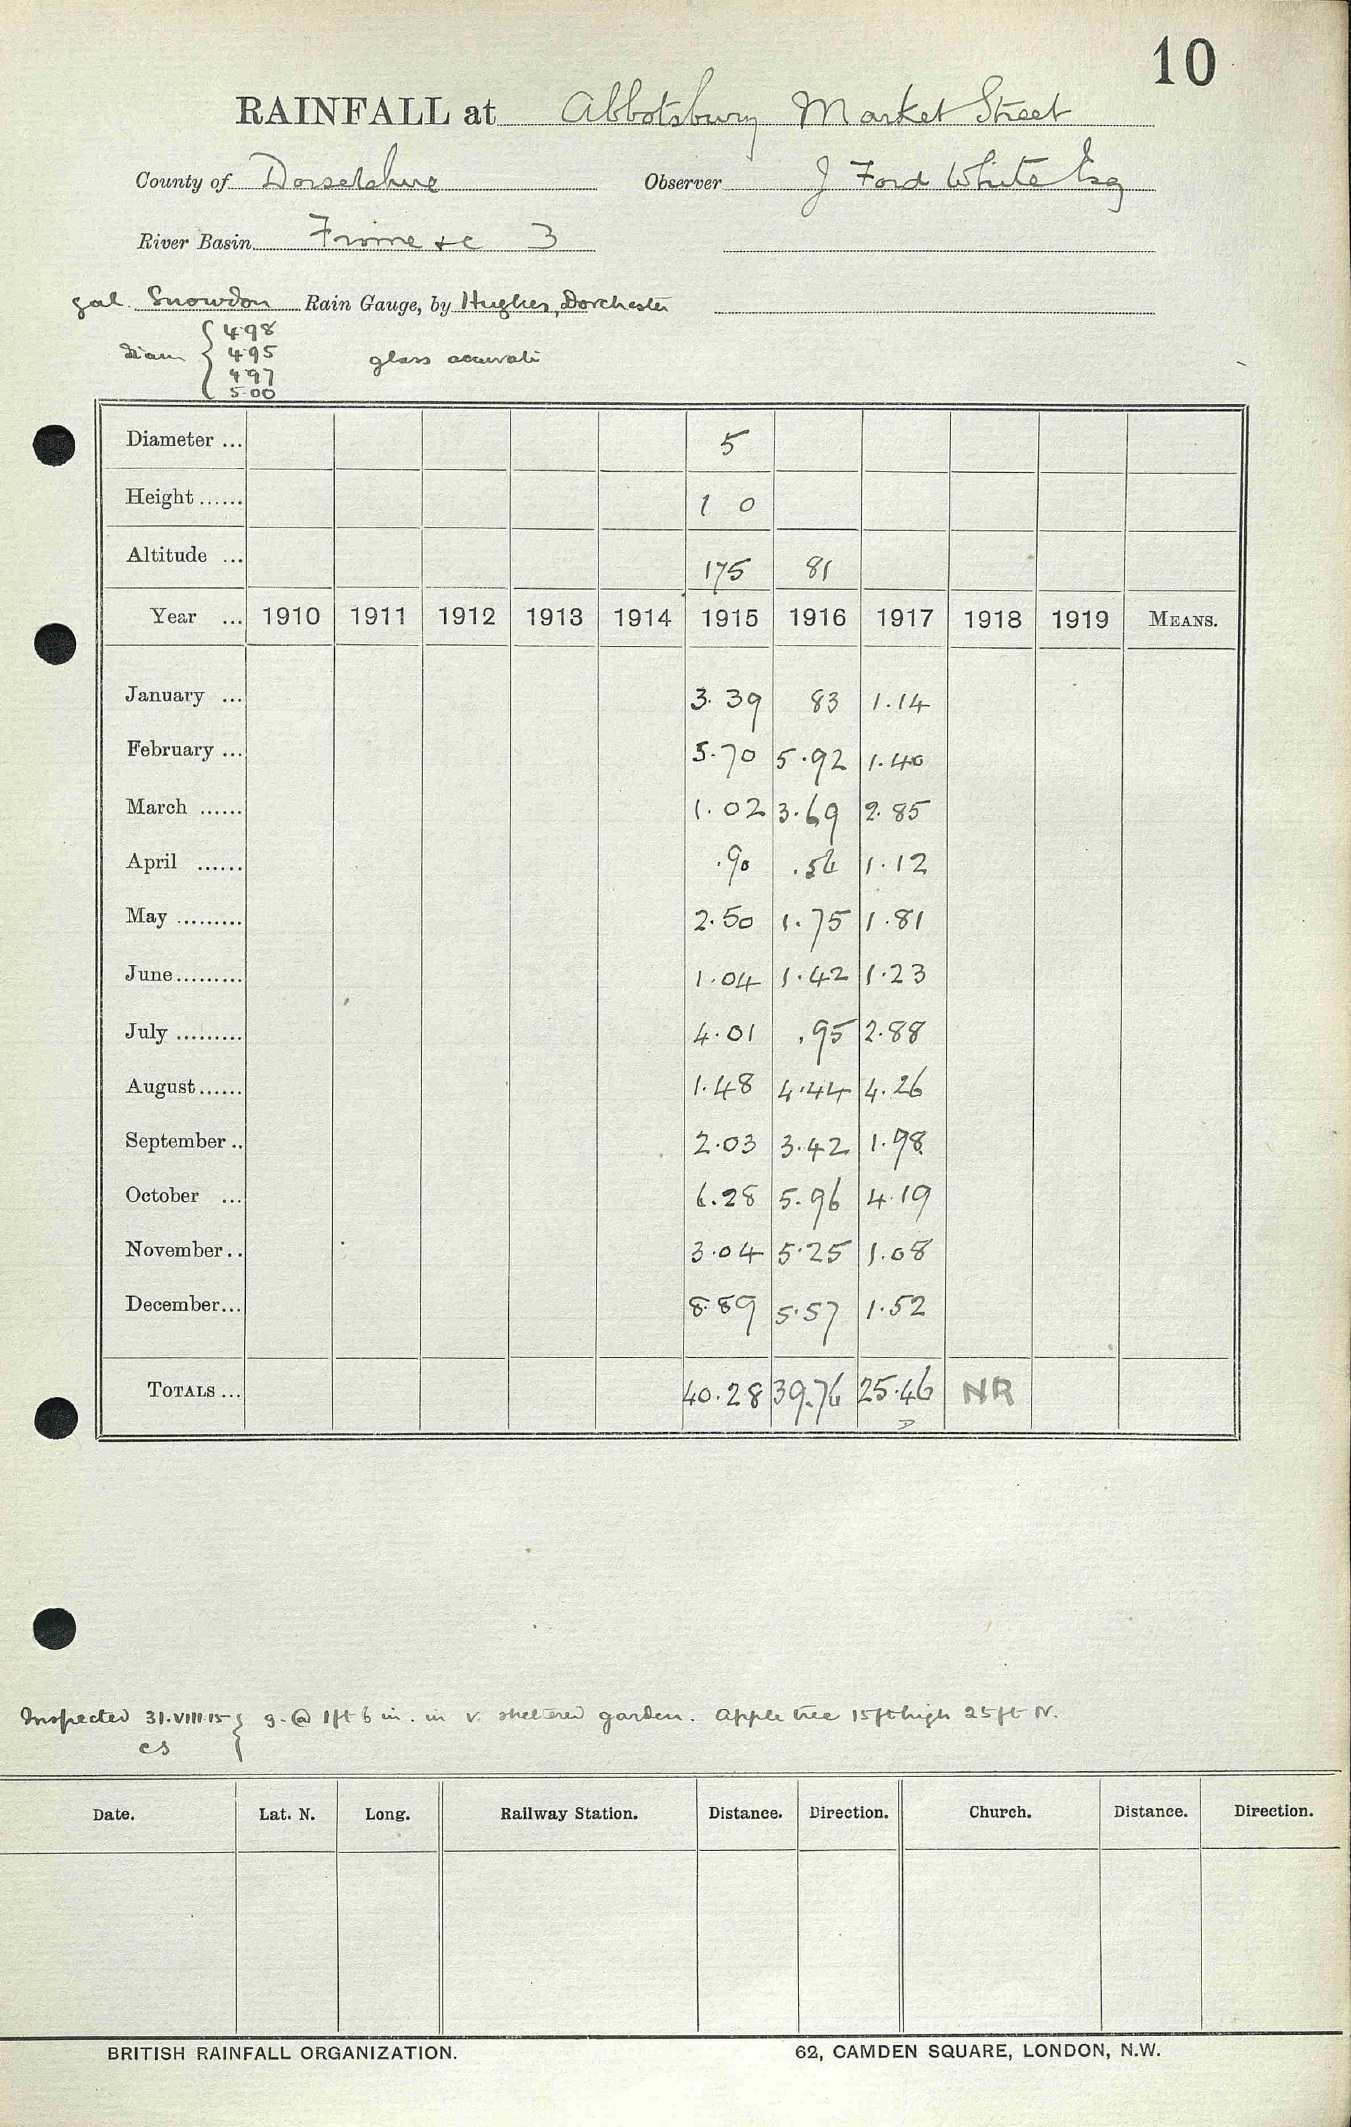 10
RAINFALL at Abbotsbury Market Street
County of Dorsetshire Observer J Ford White Esq
River Basin Frome &c 3
gal. Snowdon Rain Gauge, by Hughes, Dorchester
4.98
diam { 4.95 glass accurate
4.97
5.00
Diameter ... 5
Height ...... 1 0
Altitude ... 175 81
Year ... 1910 1911 1912 1913 1914 1915 1916 1917 1918 1919 MEANS.
January ... 3.39 83 1.14
February ... 5.70 5.92 1.40
March ...... 1.02 3.69 2.85
April ...... .90 .56 1.12
May ......... 2.50 1.75 1.81
June ......... 1.04 1.42 1.23
July ......... 4.01 .95 2.88
August ...... 1.48 4.44 4.26
September .. 2.03 3.42 1.98
October ... 6.28 5.96 4.19
November .. 3.04 5.25 1.08
December ... 8.89 5.57 1.52
TOTALS ... 40.28 39.76 25.46 NR
Inspected 31.VIII.15 } g. @ 1ft 6 in. in v. sheltered garden. Apple tree 15ft high 25ft N.
cs
Date. Lat. N. Long. Railway Station. Distance. Direction. Church. Distance. Direction.
BRITISH RAINFALL ORGANIZATION. 62, CAMDEN SQUARE, LONDON, N.W.